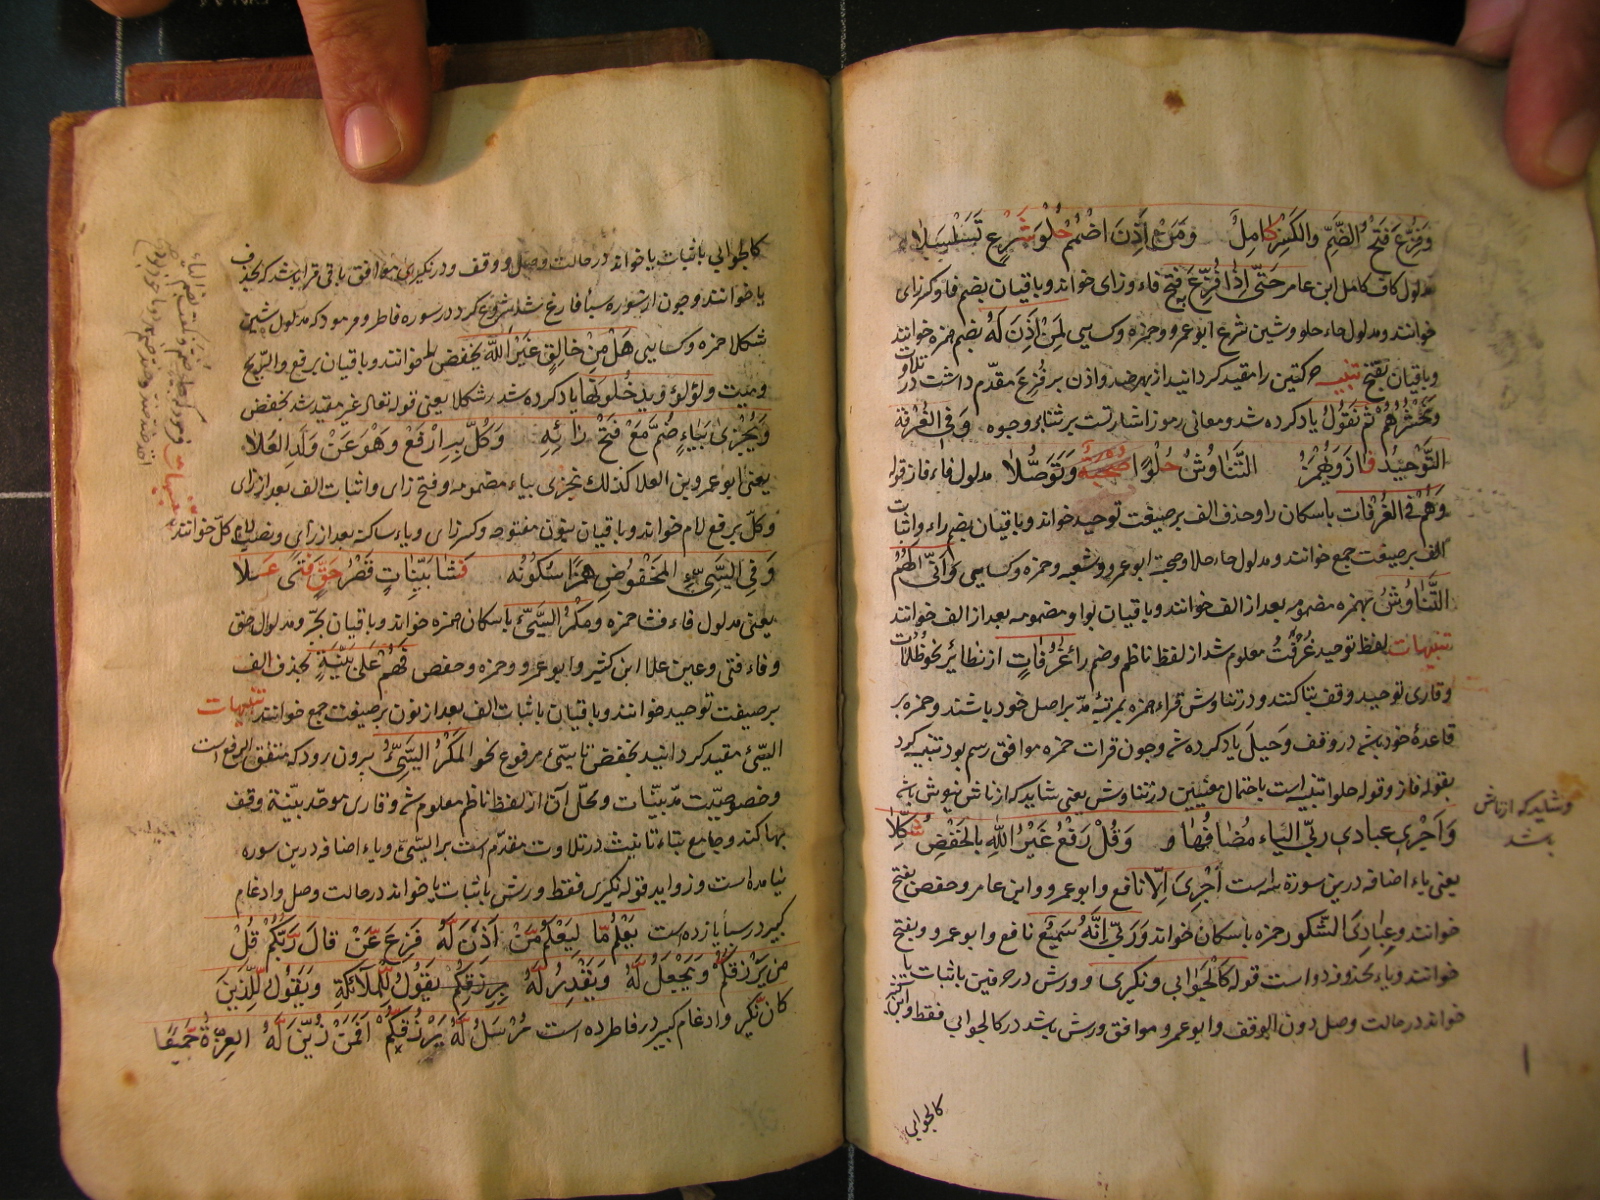 وَفُزِّعَ فَتْحُ الضَّمِّ وَالكَسْرِ كَامِلٌ وَمَنْ أَذِنَ اضْمُمْ حُلْوَ شَرْعٍ تَسَلْسَلَا
مدلول کاف کامل ابن عامر حَتّى اِذا فُزِّعَ بفتح فاء و زای خواند و باقیان بضم فا و کسر زای
خوانند و مدلول حاء حلو و شین شرع ابو عمرو و حمزه و کسایی لِمَنْ اَذِنَ لَهُ بضم همزه خوانند
و باقیان بفتح تنبیه حرکتین را مقید کردانید از بهر ضد و اذن بر فزع مقدّم داشت در تلاوت
و نَحْشُرُهُمْ ثُم نَقُولُ یاد کرده شد و معانی رموز اشارتست بر ثنا بر وجوه وَفِي الغُرْفَةِ
التَّوْحِيدُ فَازَ وَيُهْمَزُ التَّنَاوُشُ حُلْوًا صُحْبَةً وَتَوَصُّلَا مدلول فاء فاز قوله
وَهُمْ فِی الغُرُفات باسکان را و حذف الف بر صیغت توحید خواند و باقیان بضم راء و اثبات
الف بر صیغت جمع خوانند و مدلول حاء حلا و صحبت ابو عمرو و شعبه و حمزه و کسایی وَاَنّی لَهُمُ
التَّناوُشُ بهمزه مضمومه بعد از الف خوانند و باقیان بواو مضمومه بعد از الف خوانند
تنبیهات لفظ توحید غُرْفَت معلوم شد از لفظ ناظم و ضم راء غُرُفات از نظائر نحو ظلمات
و قاری توحید وقف بتا کنند و در تناوش قراء همزه بمرتبهٔ مدّ بر اصل خود باشند و حمزه بر
قاعدهٔ خود بشه در وقف وَحیلَ یاد کرده شه و چون قرات حمزه موافق رسم بود تنبیه کرد
بقوله فاز و قوله حلوا تنبیه است باحتمال معنیین در تناوش یعنی شاید که از ناش ینوش باشه
وَاَجْرِی عِبَادِی رَبِّی الیَاء مُضَافُهَا وَقُلْ رَفْعُ غَيْرُ اللهِ بِالخَفْضِ شُكِّلَا
یعنی یاء اضافه درین سورة سه است اَجْرِیَ اِلّا نافع و ابو عمرو و ابن عامر و حفص بفتح
خوانند و عِبادِیَ الشَّکور حمزه باسکان خواند و رَبّی اِنَّهُ سَمیعٌ نافع و ابو عمرو بفتح
خوانند و یاء محذوف دو است قوله کالجَوابی و نکیری و ورش در حرفین باثبات یا
خواند در حالت وصل دون الوقف و ابو عمرو موافق ورش باشد در کالجوابی فقط و ابن کثیر
و شاید که از ناش
باشد
کالجوابی
کالجوابی باثبات یا خواند در حالت وصل و وقف و در نکیری موافق باقی قرا باشد که بحذف
یا خوانند و چون از سوره سبأ فارغ شد شروع کرد در سوره فاطر و فرمود که مدلول شین
شکلا حمزه و کسایی هَلْ مِنْ خالِقٍ غَیْرِ اللّه بخفض را خوانند و باقیان برفع و الرّیح
و میت و لؤلؤ و یدخلونها یاد کرده شد در شکلا یعنی قوله تعالی غیر مقید شد بخفض
وَيُجْزَى بِيَاءٍ ضُمَّ مَعْ فَتْحِ زَائِهِ وَكُلَّ بِهِ ارْفَعْ وَهْوَ عَنْ وَلَدِ العَلَا
یعنی ابو عمرو بن العلا کذلك یجزی بیاء مضمومه و فتح زای و اثبات الف بعد از زای
و کلّ برفع لام خواند و باقیان بنون مفتوحه و کسر زای و یاء ساکنه بعد از زای و بنصب لام کلّ خوانند
وَفِي السَّيِّئِ المَخْفُوضِ هَمْزًا سُكُونُهُ فَشَا بَيِّنَاتٍ قَصْرُ حَقٍّ فَتًى عَلَا
یعنی مدلول فاء فشا حمزه وَ مَکْرَ السَّیِّئْ باسکان همزه خواند و باقیان بجرّ و مدلول حق
و فاء فتی و عین علا ابن کثیر و ابو عمرو و حمزه و حفص فَهُمْ عَلی بَیِّنَةٍ بحذف الف
بر صیغت توحید خوانند و باقیان باثبات الف بعد از نون بر صیغت جمع خوانند تنبیهات
السیّئ مقید کردانید بخفض تا سیّئ مرفوع نحو المَکْرُ السَّیِّئُ بیرون رود که متفق الرفع است
و خصوصیّت مدّ بیّنات و محلّ آن از لفظ ناظم معلوم شه و قاری موحّد بیّنة وقف
بها کند و جامع بتاء تانیث در تلاوت مقدّم است بر السیّئ و یاء اضافه درین سوره
نیامده است و زواید قوله نکیری فقط ورش باثبات یا خواند در حالت وصل و ادغام
کبیر در سبأ یازده است یَعْلَمُ مّا لِیَعْلَمَ مَنْ اَذِنَ لَّهُ فُزِّعَ عَّنْ قالَ رَّبُّکُمْ قُلْ
مَن یَرْزُقُکُمْ وَ یَجْعَلُ لَّهُ وَ یَقْدِرُ لَّهُ یَقُولُ لِّلْمَلائِکَةِ وَ یَقُولُ لِّلَّذینَ
کان نَّکیرِ و ادغام کبیر در فاطر ده است مُرْسِلَ لَّهُ یَرْزُقُکُمْ اَفَمَنْ زُیِّنَ لَّهُ العِزَّةُ جَّمیعًا